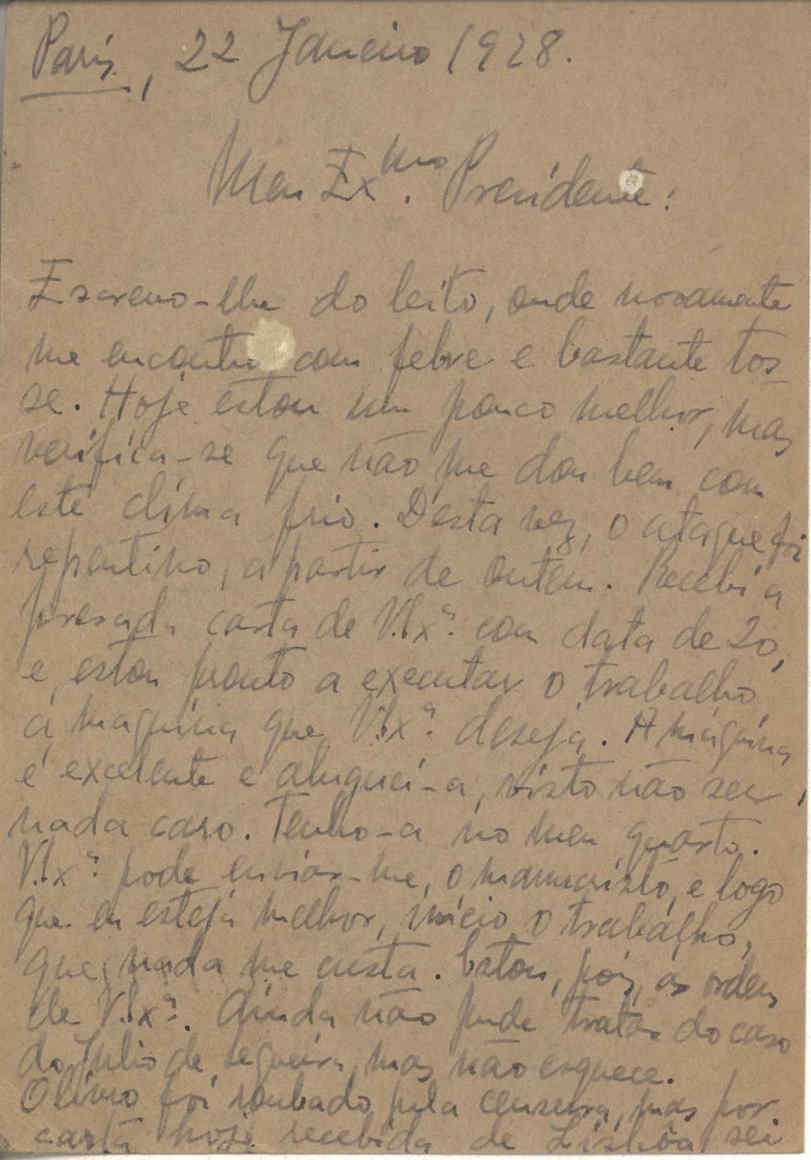 Paris, 22 Janeiro 1928.
Meu Exmo. Presidente:
Escrevo-lhe do leito, onde novamente
me encontro com febre e bastante tos-
se. Hoje estou um pouco melhor, mas
verifica-se que não me dou bem com
este clima frio. Desta vez, o ataque foi
repentino, a partir de ontem. Recebi a
presada carta de V.Exª. com data de 20,
e estou pronto a executar o trabalho
á maquina que V.Exª. deseja. A máquina
é excelente e aluguei-a, visto não ser
nada caro. Tenho-a no meu quarto.
V.Exª. pode enviar-me, o manuscrito, e logo
que eu esteja melhor, inicio o trabalho,
que nada me custa. Estou, pois, ás ordens
de V.Exª. Ainda não pude tratar do caso
do Julio de Sequeira, mas não esquece.
O livro foi roubado pela censura, mas por
carta hoje recebida de Lisboa sei